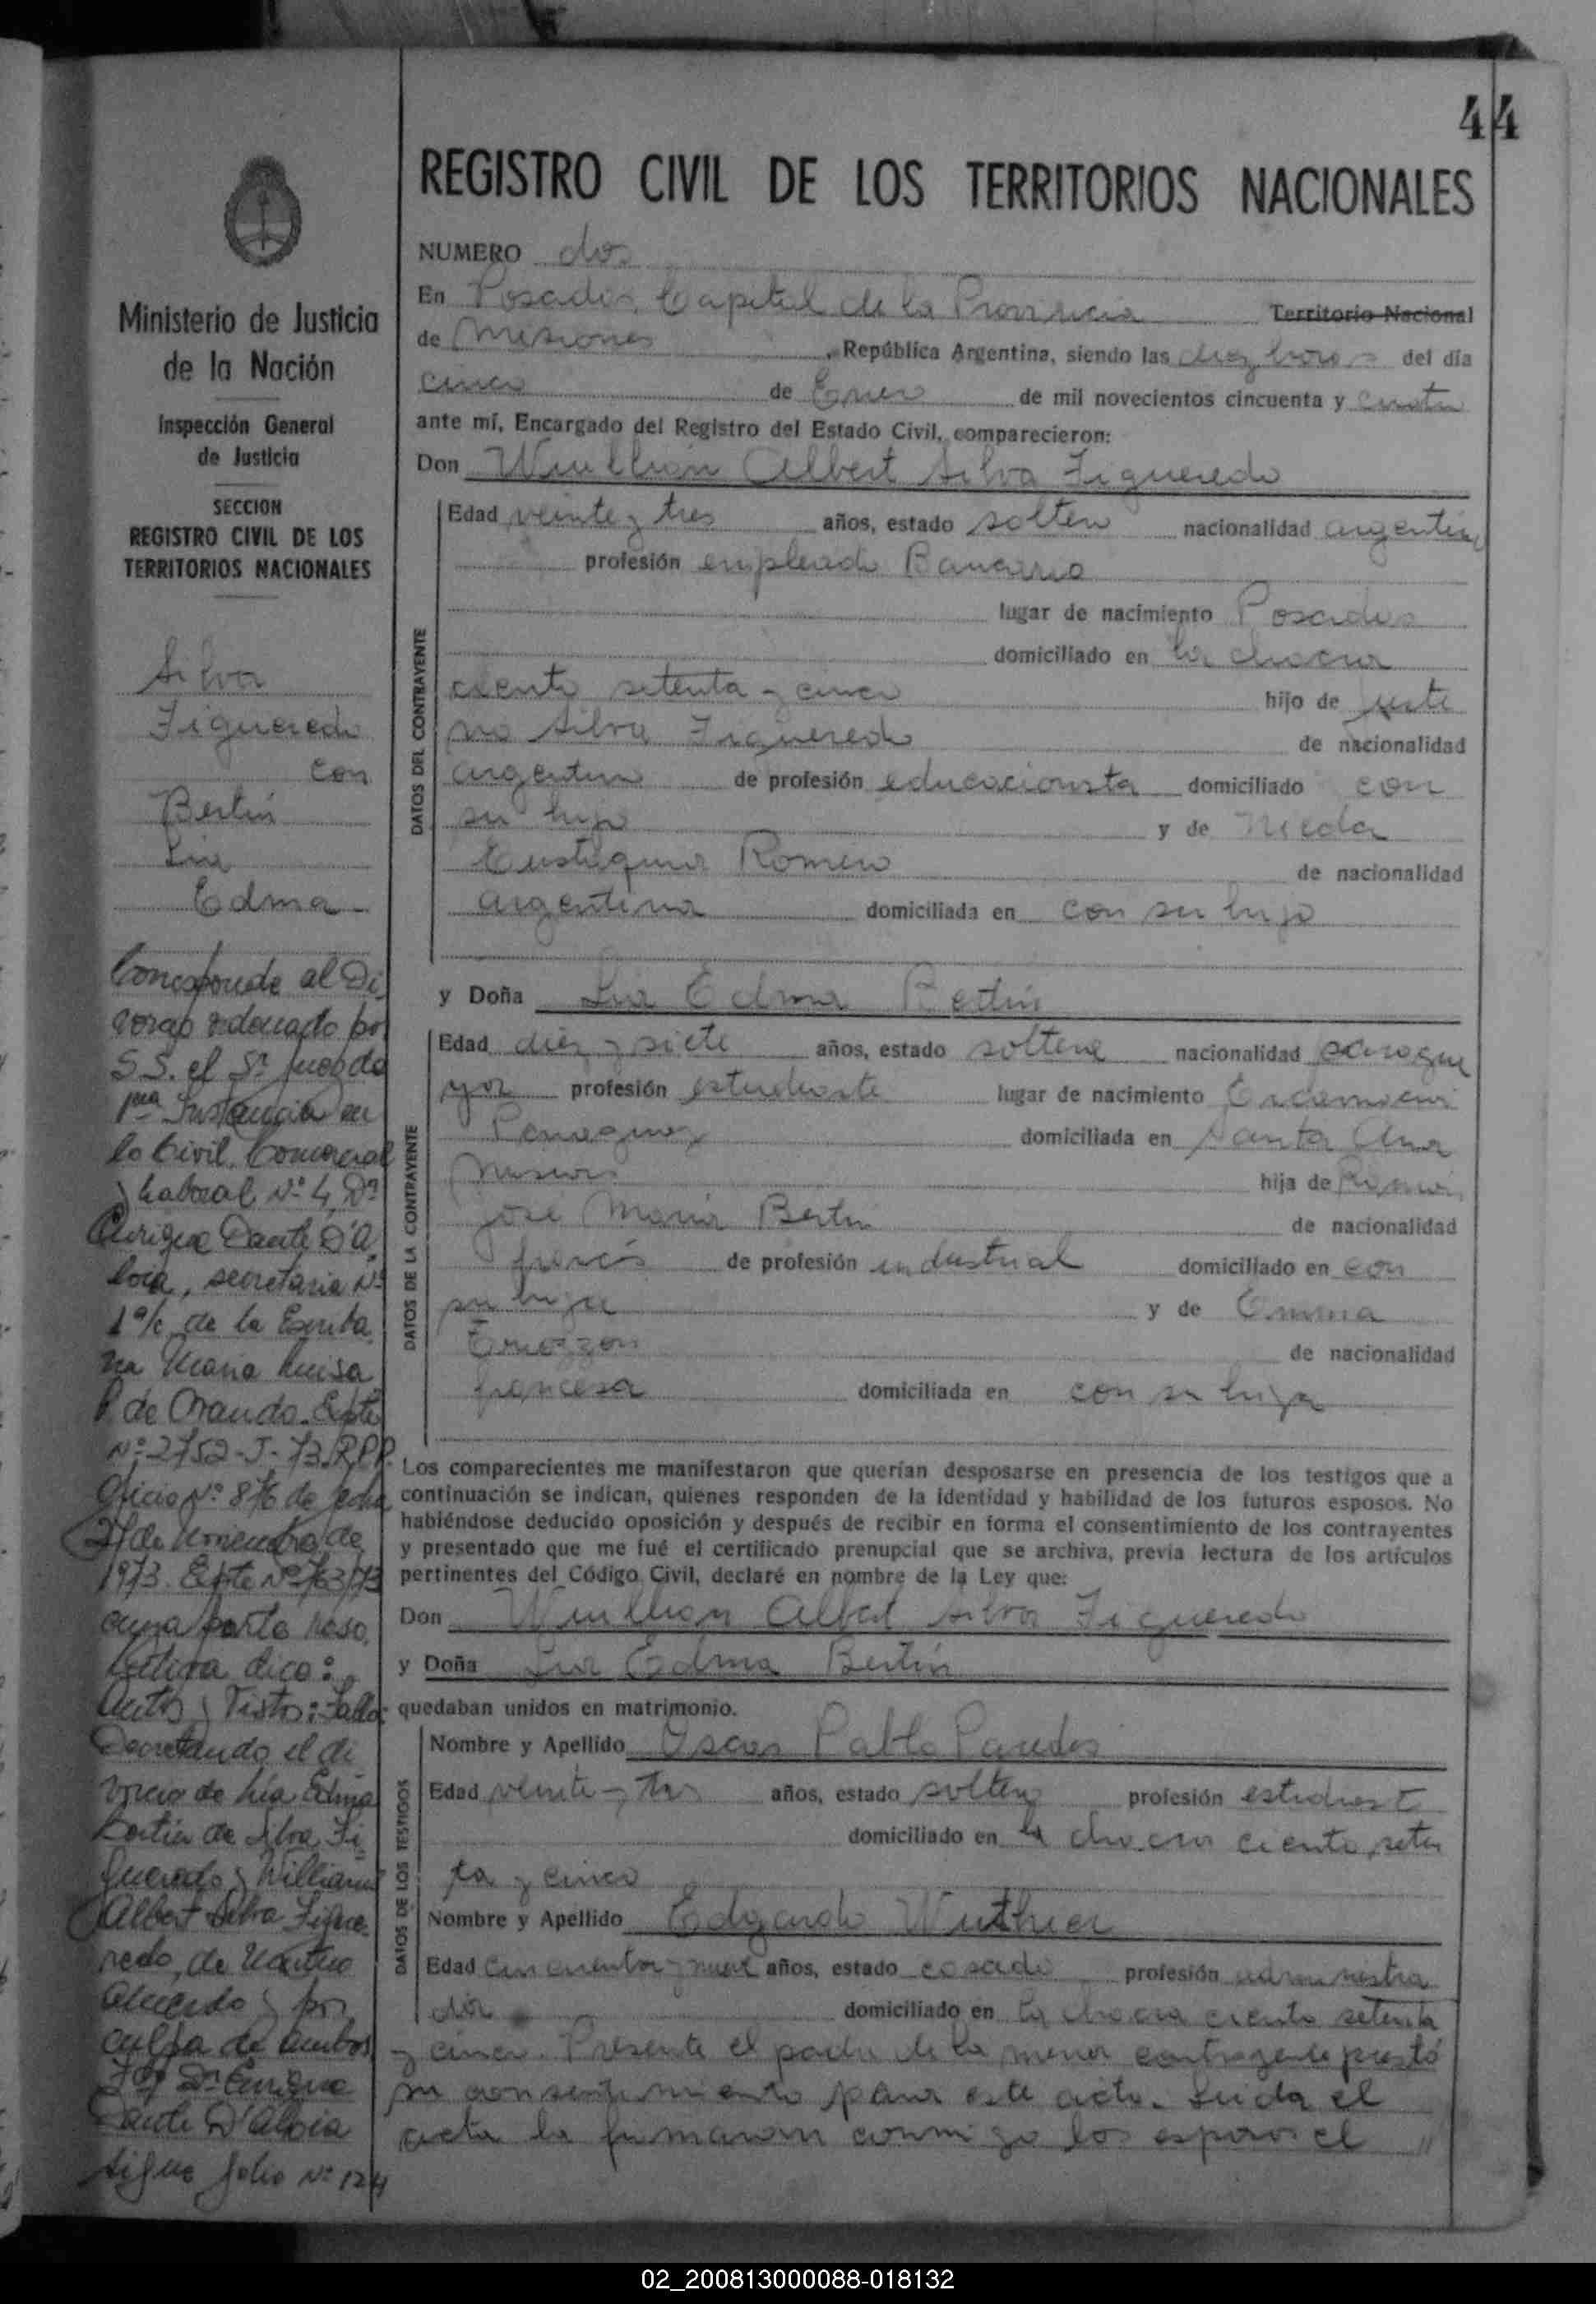 44
REGISTRO CIVIL DE LOS TERRITORIOS NACIONALES
Ministerio de Justicia
de la Nación
Inspección General
de Justicia
SECCION
REGISTRO CIVIL DE LOS
TERRITORIOS NACIONALES
Silva
Figueredo
con
Bertín
Lia
Edma
Corresponde al Di
vorcio ordenado por
S.S. el Sr Juez de
1ma Instancia en
lo Civil, Comercial
y Laboral Nº 4, Dr
Enrique Dante D'A
loia, secretaria Nº
1 a/c de la Escriba
na Maria Luisa
P. de Orando. Expte
Nº 2752-J-73.R.P.P.
Oficio Nº 876 de fecha
27 de Noviembre de
1973. Expte Nº 763/73
cuya parte reso
lutiva dice:
Autos y Vistos: Fallo:
Decretando el di
vorcio de Lía Edma
Bertín de Silva Fi
gueredo y William
Albert Silva Figue
redo, de mutuo
acuerdo y por
culpa de ambos
Fdo Dr Enrique
Dante D'Aloia
Sigue folio Nº 124
NUMERO dos
En Posadas, Capital de la Provincia Territorio Nacional
de Misiones, República Argentina, siendo las diez horas del día
cinco de Enero de mil novecientos cincuenta y cuatro
ante mí, Encargado del Registro del Estado Civil, comparecieron:
Don Wuillian Albert Silva Figueredo
DATOS DEL CONTRAYENTE
Edad veinte y tres años, estado soltero nacionalidad argentina
profesión empleado Bancario
lugar de nacimiento Posadas
domiciliado en la chacra
ciento setenta y cinco hijo de Juste
no Silva Figueredo de nacionalidad
argentino de profesión educacionista domiciliado con
su hijo y de Nilda
Eustaquia Romero de nacionalidad
argentina domiciliada en con su hijo
y Doña Lia Edma Bertín
DATOS DE LA CONTRAYENTE
Edad diez y siete años, estado soltera nacionalidad paragua
ya profesión estudiante lugar de nacimiento Encarnación
Paraguay domiciliada en Santa Ana
Misiones hija de Ramón
José María Bertín de nacionalidad
francés de profesión industrial domiciliado en con
su hija y de Emma
de nacionalidad
francesa domiciliada en con su hija
Los comparecientes me manifestaron que querían desposarse en presencia de los testigos que a
continuación se indican, quienes responden de la identidad y habilidad de los futuros esposos. No
habiéndose deducido oposición y después de recibir en forma el consentimiento de los contrayentes
y presentado que me fué el certificado prenupcial que se archiva, previa lectura de los artículos
pertinentes del Código Civil, declaré en nombre de la Ley que:
Don Wuillian Albert Silva Figueredo
y Doña Lia Edma Bertín
quedaban unidos en matrimonio.
DATOS DE LOS TESTIGOS
Nombre y Apellido Oscar Pablo Paredes
Edad veinte y tres años, estado soltero profesión estudiante
domiciliado en la chacra ciento seten
ta y cinco
Nombre y Apellido Edgardo Wuthier
Edad cincuenta y nueve años, estado casado profesión administra
dor domiciliado en la chacra ciento setenta
y cinco. Presente el padre de la menor contrayente prestó
su consentimiento para este acto. Leida el
acta la firmaron conmigo los esposos el "
02_200813000088-018132